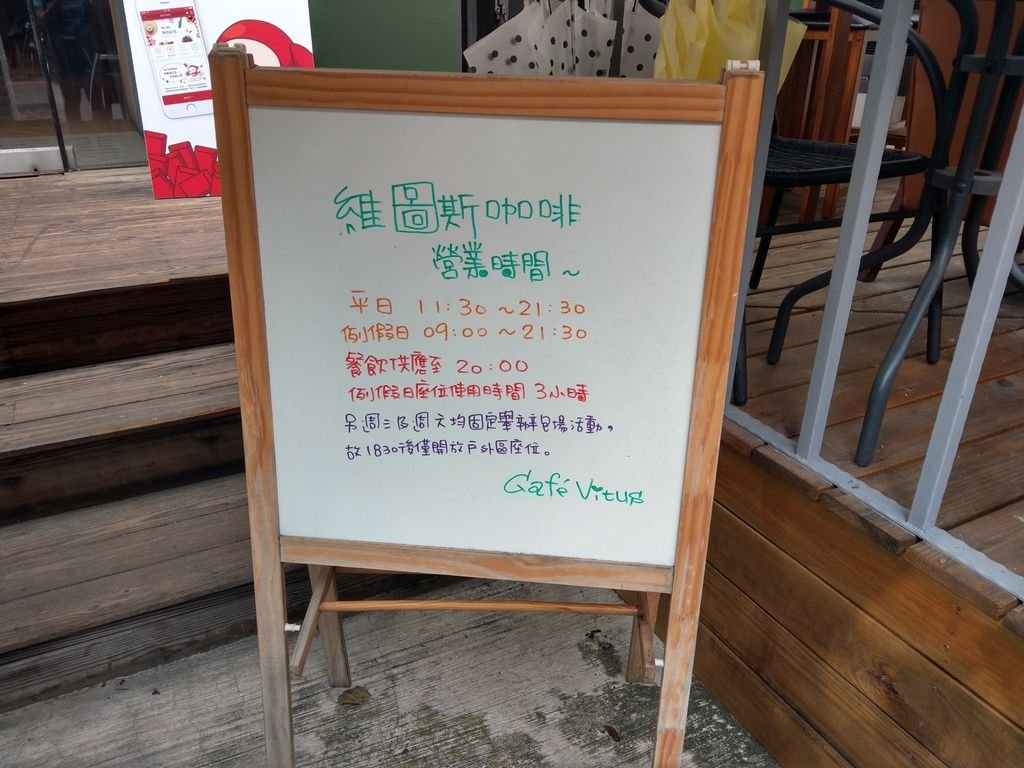 維圖斯咖啡
營業時間~
平日 11:30~21:30
例假日 09:00~21:30
餐飲供應至 20:00
例假日座位使用時間 3小時
另周三及周六均固定舉辦包場活動。
故1830後僅開放戶外區座位。
Café Vitus